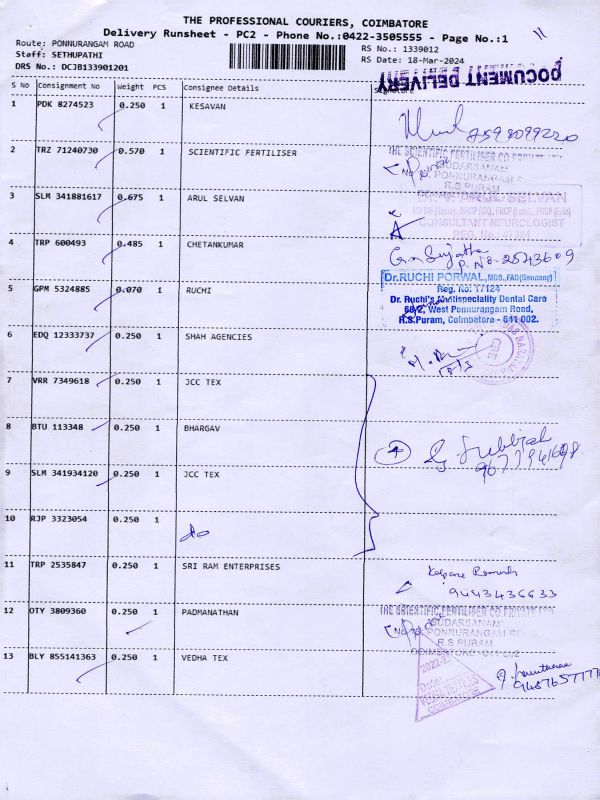 THE PROFESSIONAL COURIERS, COIMBATORE
Delivery Runsheet - PC2 - Phone No.:0422-3505555 - Page No.:1
Route: PONNURANGAM ROAD
Staff: SETHUPATHI
DRS No.: DCJB133901201
RS No.: 1339012
RS Date: 18-Mar-2024
DOCUMENT DELIVERY
S No Consignment No Weight PCS Consignee Details Signature
1 PDK 8274523 0.250 1 KESAVAN
2 TRZ 71240730 0.570 1 SCIENTIFIC FERTILISER
THE SCIENTIFIC FERTILISER CO PRIVATE LTD
SUDARSANAM
PONNURANGAM
R.S PURAM
3 SLM 341881617 0.675 1 ARUL SELVAN
ARUL SELVAN
CONSULTANT NEUROLOGIST
4 TRP 600493 0.485 1 CHETANKUMAR
P. No. 2543609
5 GPM 5324885 0.070 1 RUCHI
Dr.RUCHI PORWAL, MDS., FAD(Germany)
Reg. No: 17124
Dr. Ruchi's Multispeciality Dental Care
68/2, West Ponnurangam Road,
R.S.Puram, Coimbatore - 641 002.
6 EDQ 12333737 0.250 1 SHAH AGENCIES
18/3
7 VRR 7349618 0.250 1 JCC TEX
8 BTU 113348 0.250 1 BHARGAV
9 SLM 341934120 0.250 1 JCC TEX
10 RJP 3323054 0.250 1
11 TRP 2535847 0.250 1 SRI RAM ENTERPRISES
9443436633
12 OTY 3809360 0.250 1 PADMANATHAN
THE SCIENTIFIC FERTILISER CO PRIVATE LTD
SUDARSANAM
PONNURANGAM
R.S PURAM
13 BLY 855141363 0.250 1 VEDHA TEX